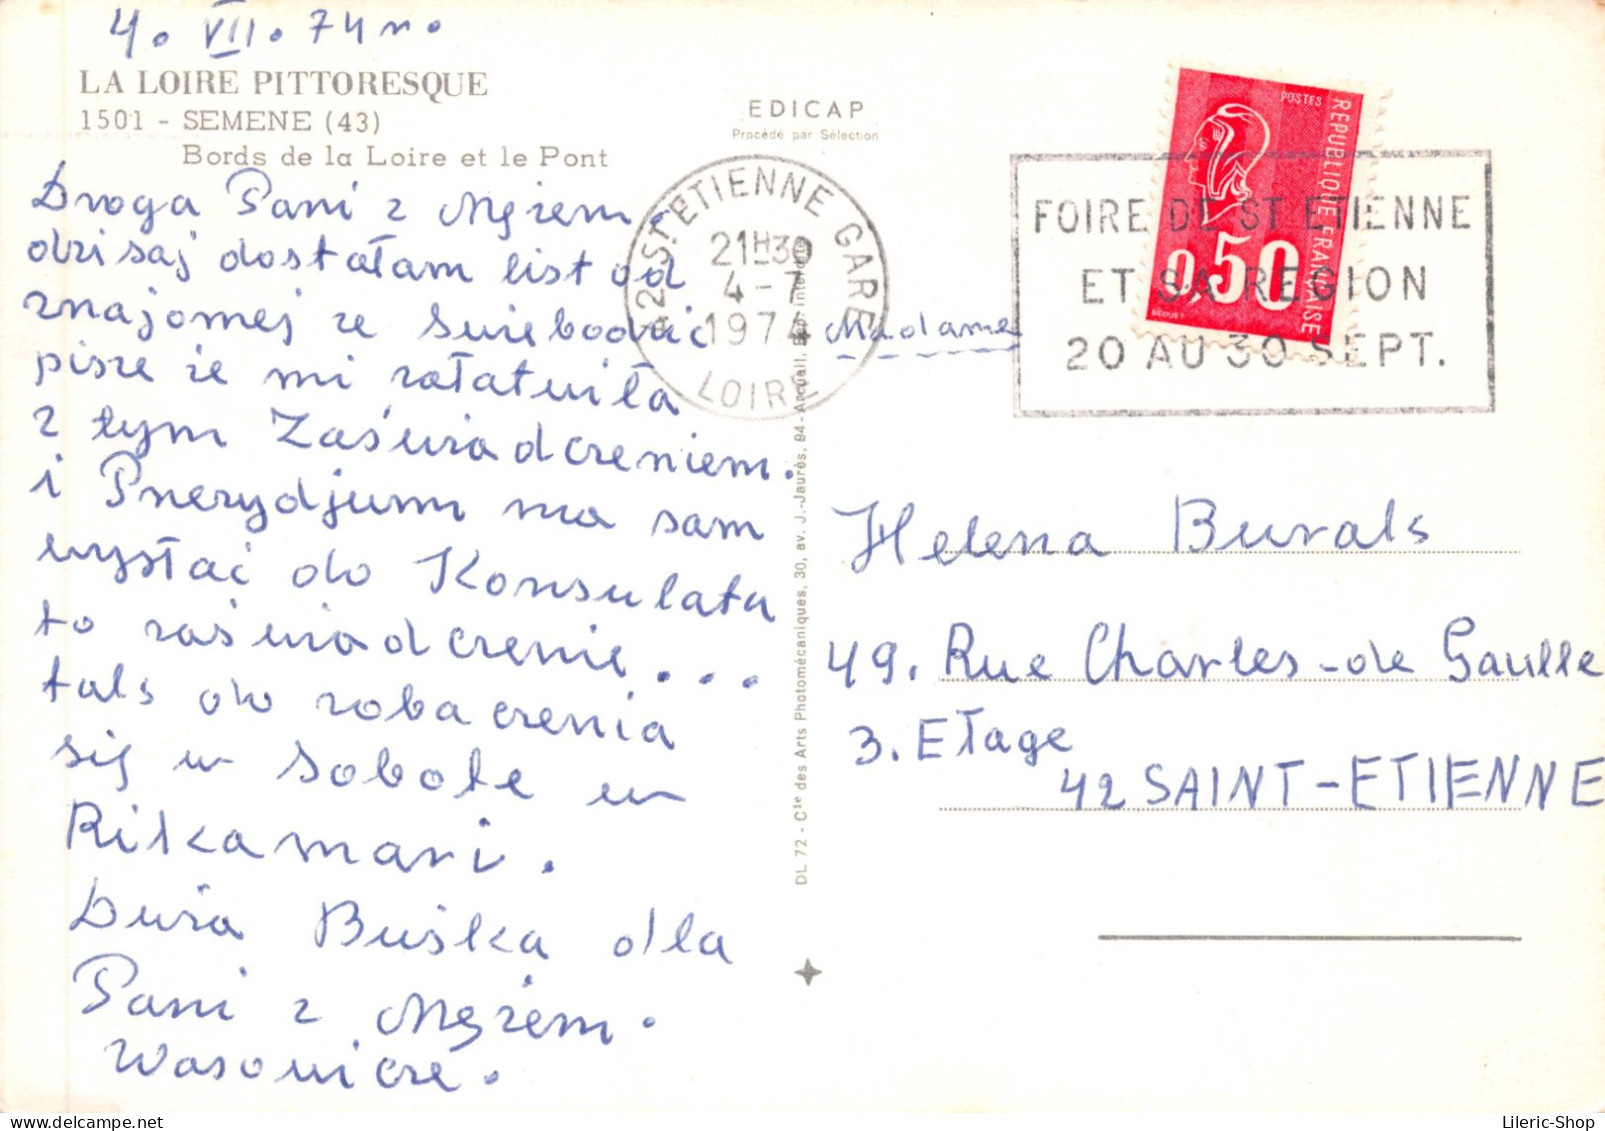 4. VII. 74 r.
LA LOIRE PITTORESQUE
1501 - SEMENE (43)
Bords de la Loire et le Pont
Droga Pani z Mężem.
dzisaj dostałam list od
znajomej ze Świebodzic
pisze że mi załatwiła
z tym Zaświadczeniem.
i Prierydjum ma sam
wysłać do Konsulata
to zaświadczenie...
tals do zobaczenia
się w Sobote w
Rikamari.
Duża Buśka dla
Pani z Mężem.
EDICAP
Procédé par Sélection
42 ST ETIENNE GARE
21H30
4-7
1974
LOIRE
DL 72 - Cie des Arts Photomécaniques, 30, av. J.-Jaurès, 94 - Arcueil.
POSTES
REPUBLIQUE FRANÇAISE
0,50
FOIRE DE ST ETIENNE
ET SA REGION
20 AU 30 SEPT.
Madame
Helena Burals
49. Rue Charles-de Gaulle
3. Etage
42 SAINT-ETIENNE
Lileric-Shop